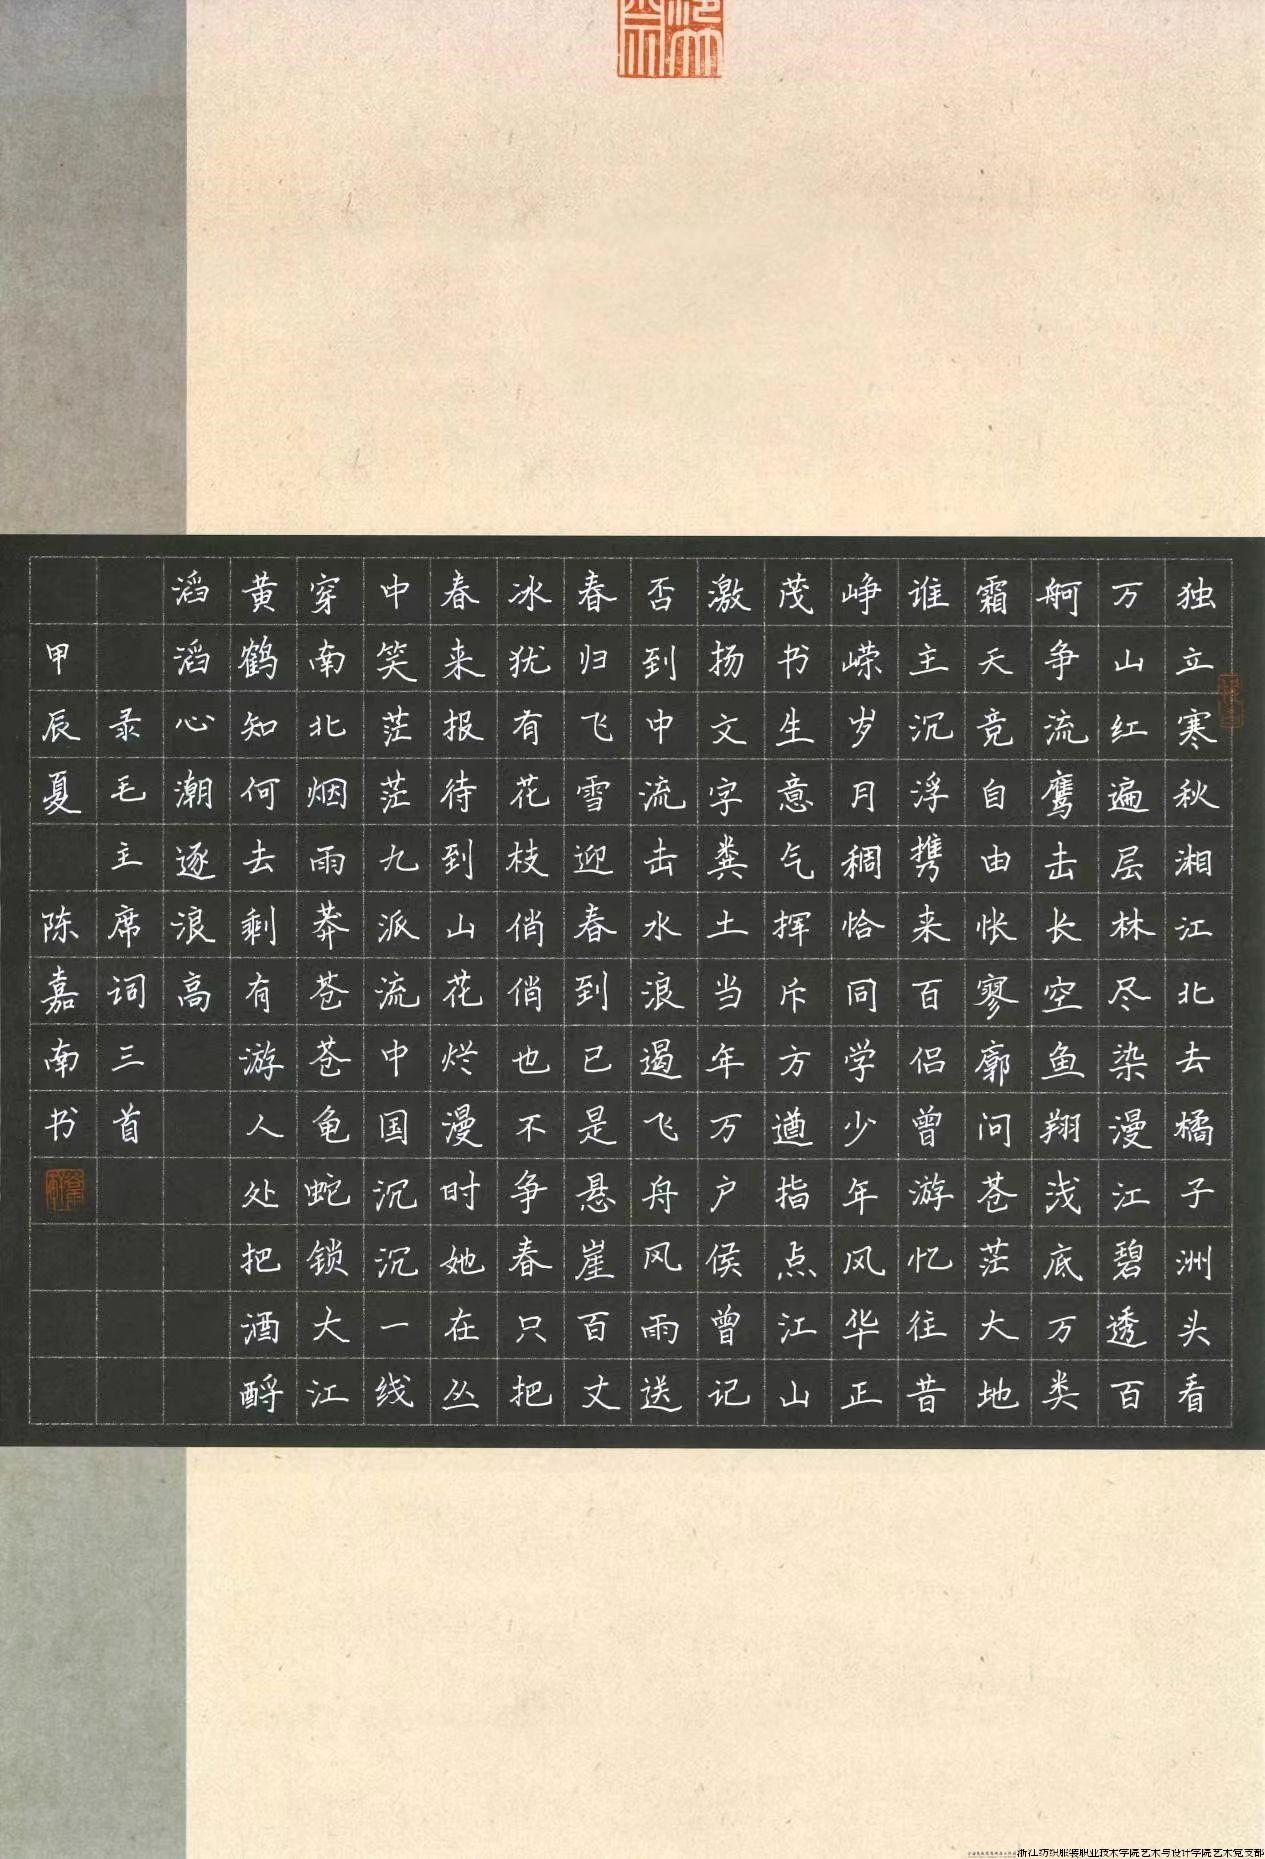 独立寒秋湘江北去橘子洲头看
万山红遍层林尽染漫江碧透百
舸争流鹰击长空鱼翔浅底万类
霜天竞自由怅寥廓问苍茫大地
谁主沉浮携来百侣曾游忆往昔
峥嵘岁月稠恰同学少年风华正
茂书生意气挥斥方遒指点江山
激扬文字粪土当年万户侯曾记
否到中流击水浪遏飞舟风雨送
春归飞雪迎春到已是悬崖百丈
冰犹有花枝俏俏也不争春只把
春来报待到山花烂漫时她在丛
中笑茫茫九派流中国沉沉一线
穿南北烟雨莽苍苍龟蛇锁大江
黄鹤知何去剩有游人处把酒酹
滔滔心潮逐浪高
录毛主席词三首
甲辰夏 陈嘉南书
浙江纺织服装职业技术学院艺术与设计学院艺术党支部